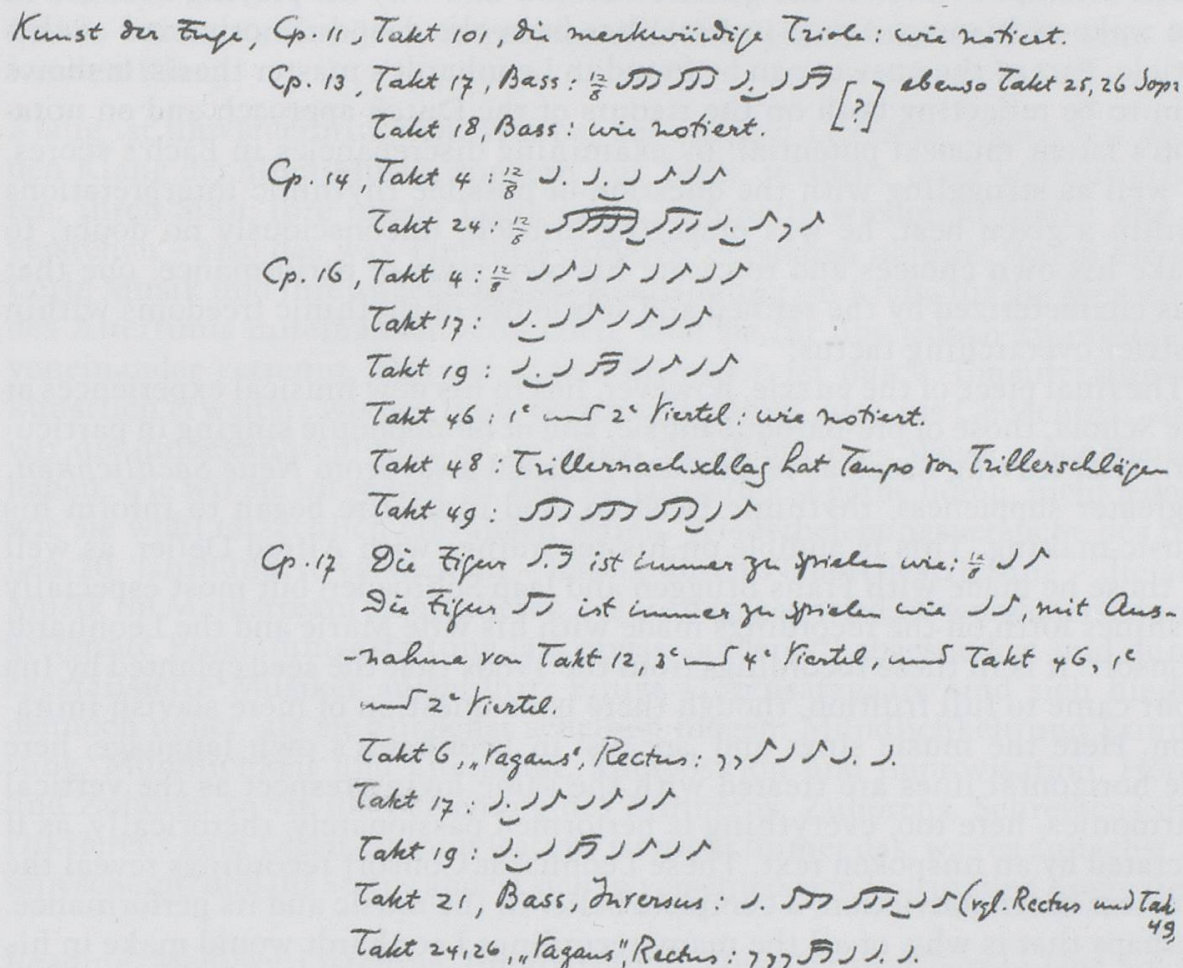 Kunst der Fuge, Cp. 11, Takt 101, die merkwürdige Triole: wie notiert.
Cp. 13, Takt 17, Bass: 12/8 [?] ebenso Takt 25, 26 Sopr
Takt 18, Bass: wie notiert.
Cp. 14, Takt 4: 12/8
Takt 24: 12/8
Cp. 16, Takt 4: 12/8
Takt 17:
Takt 19:
Takt 46: 1e und 2e Viertel: wie notiert.
Takt 48: Trillernachschlag hat Tempo von Trillerschlägen
Takt 49:
Cp. 17 Die Figur ist immer zu spielen wie: 12/8
Die Figur ist immer zu spielen wie , mit Aus-
-nahme von Takt 12, 3e und 4e Viertel, und Takt 46, 1e
und 2e Viertel.
Takt 6, „Vagans“, Rectus:
Takt 17:
Takt 19:
Takt 21, Bass, Inversus: (vgl. Rectus und Takt
49)
Takt 24, 26, „Vagans“, Rectus: